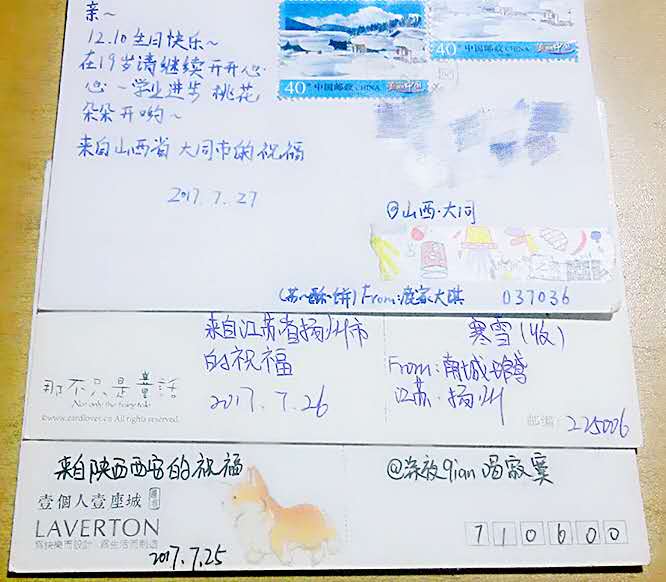 亲~
12.10生日快乐~
在19岁请继续开开心
心~学业进步 桃花
朵朵开哟~
来自山西省 大同市的祝福
2017.7.27
40分 中国邮政 CHINA
40 中国邮政 CHINA
@山西·大同
(苏~酥~饼) From:鹿家大琪 037036
来自江苏省扬州市
的祝福
2017.7.26
那不只是童話
Not only the fairy tale
©www.cardlover.cn All rights reserved.
寒雪(收)
From:南城
江苏·扬州
邮编: 225006
来自陕西西安的祝福
壹個人壹座城
LAVERTON
為快樂而設計 為生活而制造
2017.7.25
qian 唱寂寞
710600